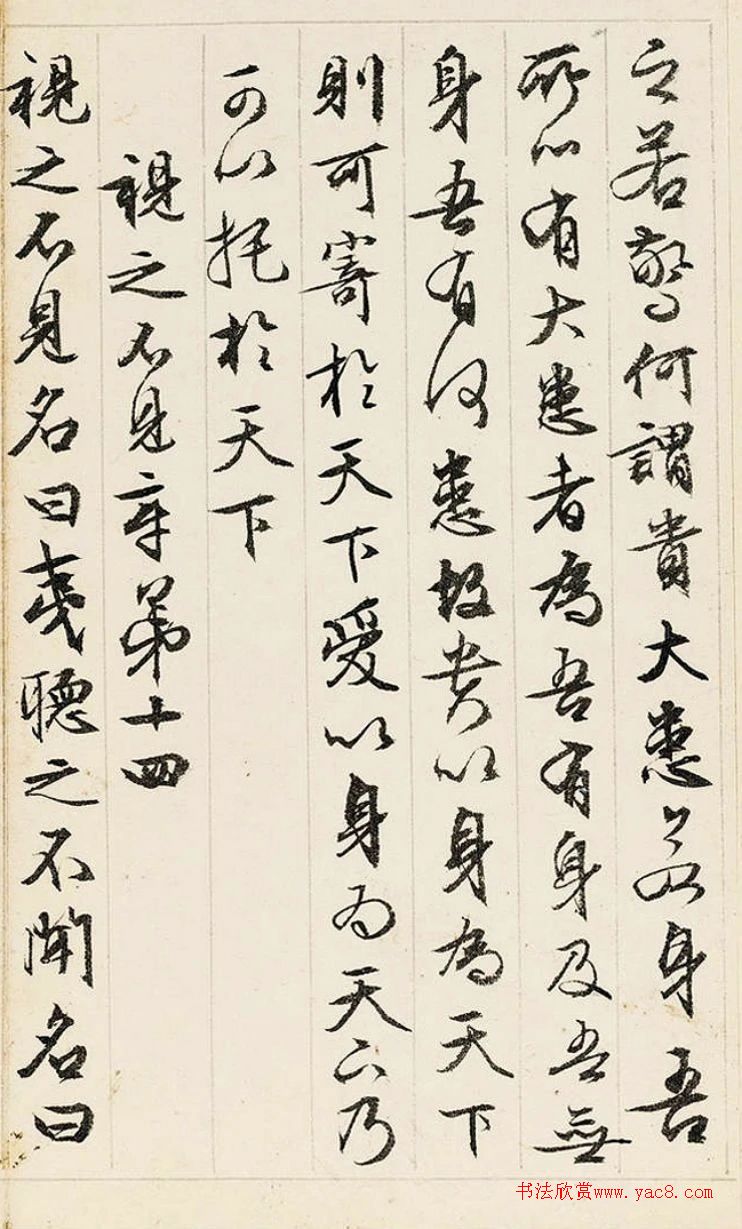 之若驚何謂貴大患若身吾
所以有大患者為吾有身及吾無
身吾有何患故貴以身為天下
則可寄於天下愛以身為天下乃
可以托於天下
視之不見章第十四
視之不見名曰夷聽之不聞名曰
书法欣赏www.yac8.com